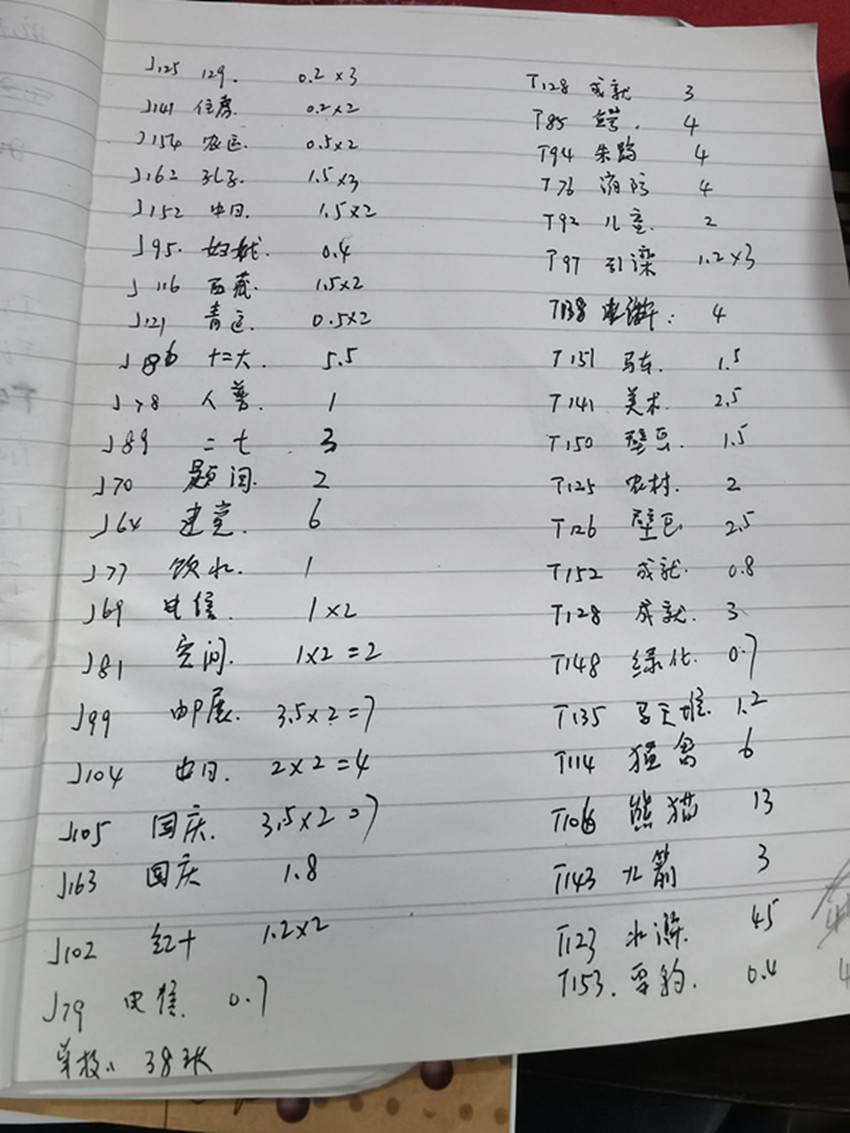 J125 129. 0.2×3
J141 住房. 0.2×2
J154 农运. 0.5×2
J162 孔子. 1.5×3
J152 中日. 1.5×2
J95. 妇女 0.4
J116 西藏. 1.5×2
J121 青运. 0.5×2
J86 十二大. 5.5
J78 人普. 1
J89 二七 3
J70 新闻. 2
J64 建党. 6
J77 饮水. 1
J69 电信. 1×2
J81 空间. 1×2=2
J99 邮展. 3.5×2=7
J104 中日. 2×2=4
J105 国庆. 3.5×2=7
J163 国庆 1.8
J102 红十 1.2×2
J79 电信. 0.7
单枚.. 38张
T128 成就 3
T85 4
T94 朱鹮 4
T76 消防 4
T92 儿童. 2
T97 引滦 1.2×3
T138 水浒: 4
T151 马车. 1.5
T141 美术. 2.5
T150 壁画. 1.5
T125 农村. 2
T126 壁画 2.5
T152 成就. 0.8
T128 成就. 3
T148 绿化. 0.7
T135 马王堆. 1.2
T114 猛禽 6
T106 熊猫 13
T143 火箭 3
T123 水浒. 45
T153. 雪豹. 0.4